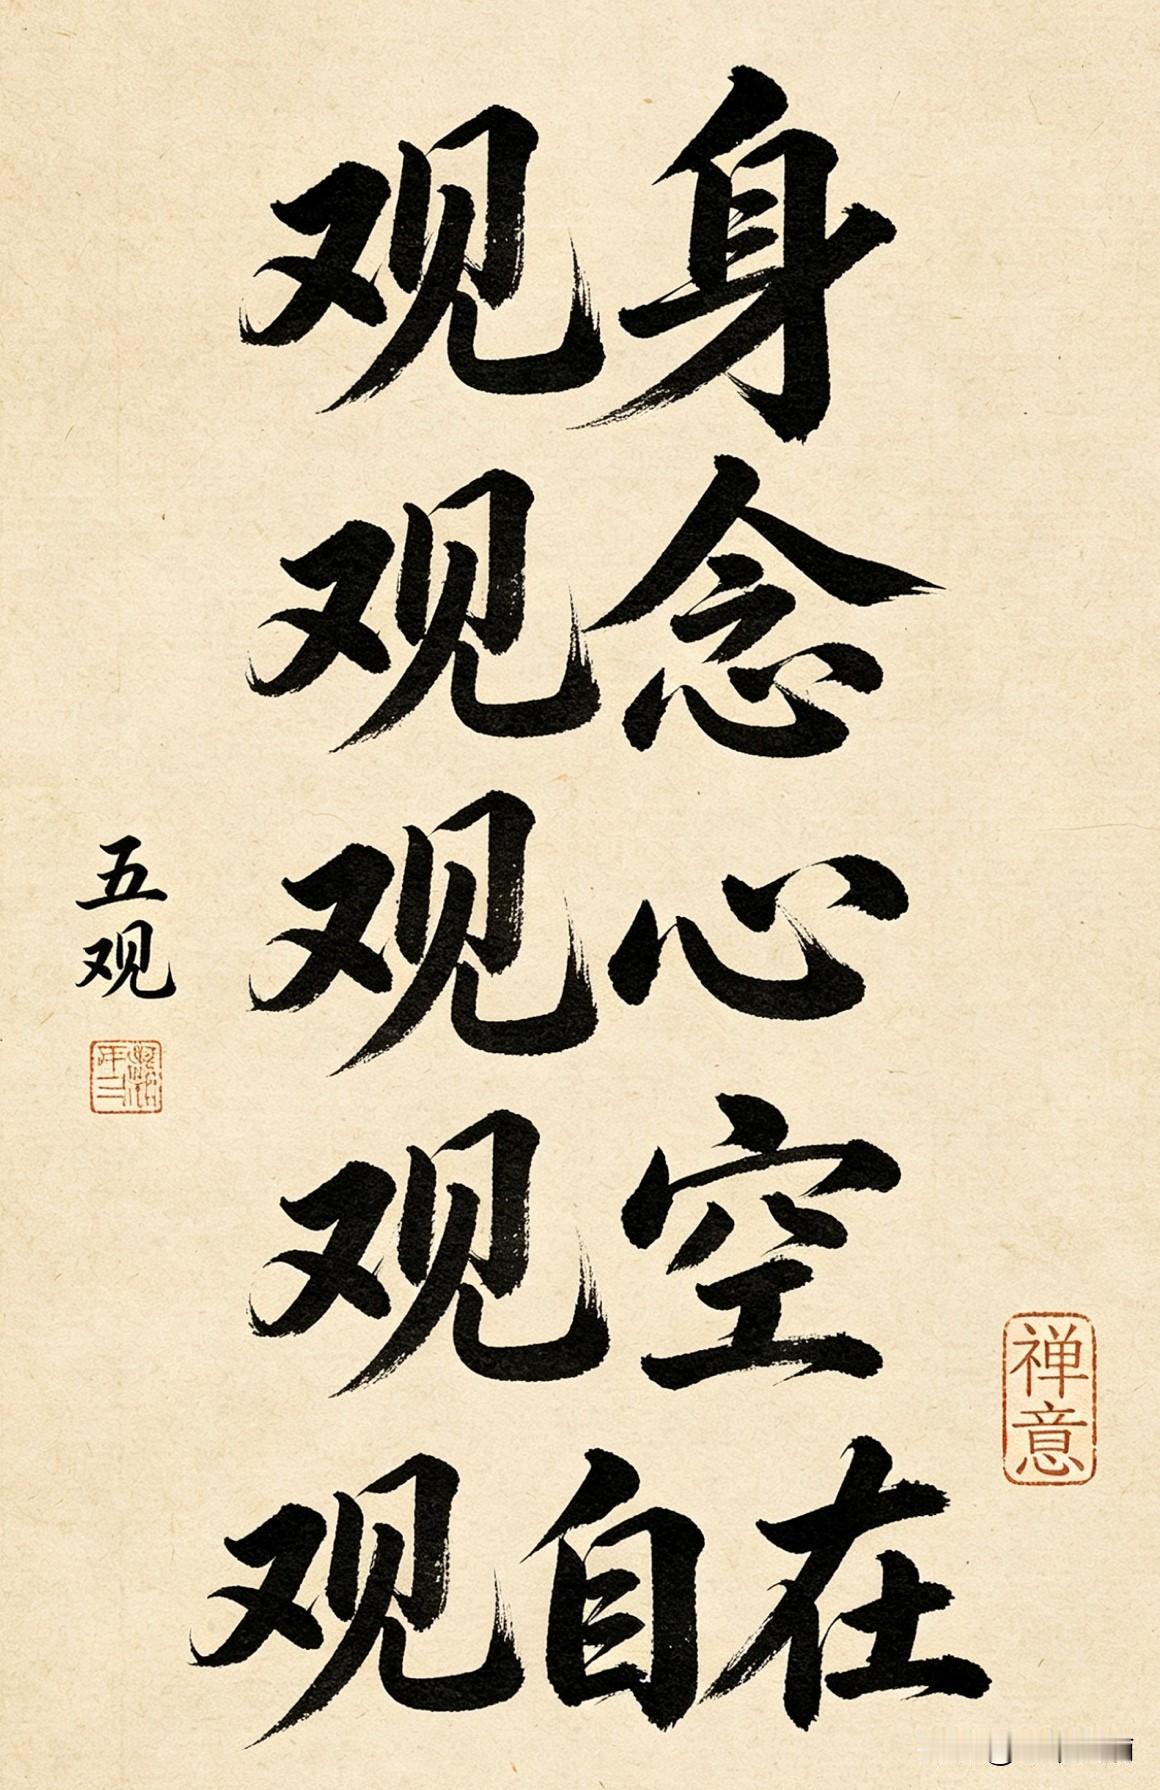 观身
观念
观心
观空
观自在
五观
禅意